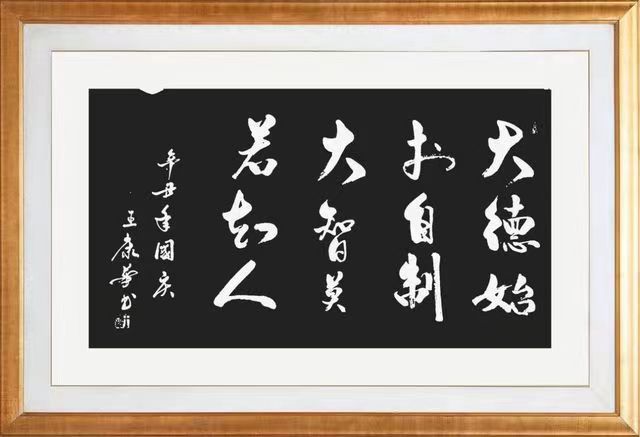 大德始
於自制
大智莫
若知人
辛丑年國庆
王康荣书